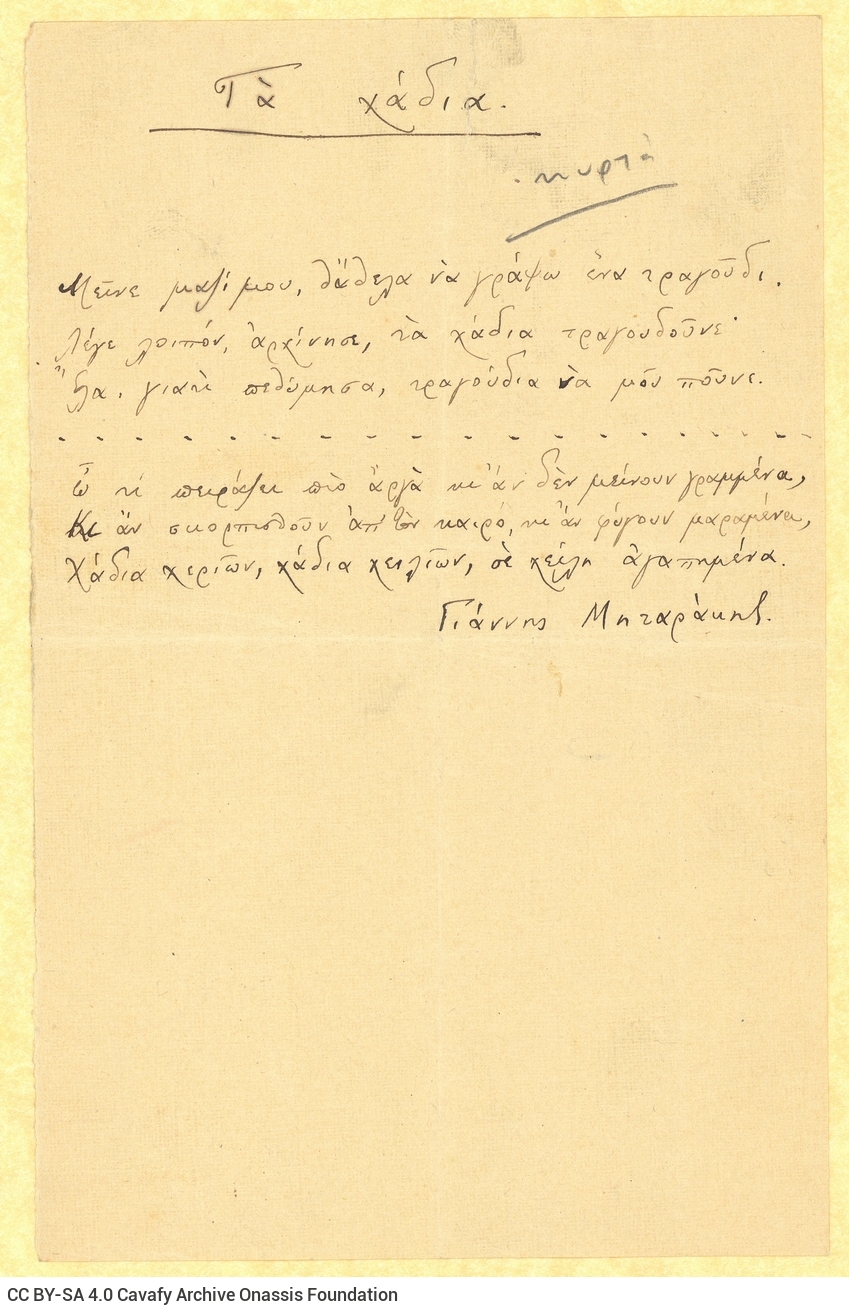 Τὰ χάδια.
κυρτὰ
Μεῖνε μαζί μου, θἄθελα νὰ γράψω ἕνα τραγοῦδι.
Λέγε λοιπόν, ἀρχίνησε, τὰ χάδια τραγουδοῦνε·
Ἔλα. γιατὶ πεθύμησα, τραγούδια νὰ μοῦ ποῦνε.
- - - - - - - - - - - - - - - - - - -
Ὢ τί πειράζει πιὸ ἀργὰ κι' ἂν δὲν μείνουν γραμμένα,
Κι ἂν σκορπισθοῦν ἀπ' τὸν καιρό, κι' ἂν φύγουν μαραμένα,
Χάδια χεριῶν, χάδια χειλιῶν, σὲ χείλη ἀγαπημένα.
Γιάννης Μηταράκης.
CC BY-SA 4.0 Cavafy Archive Onassis Foundation